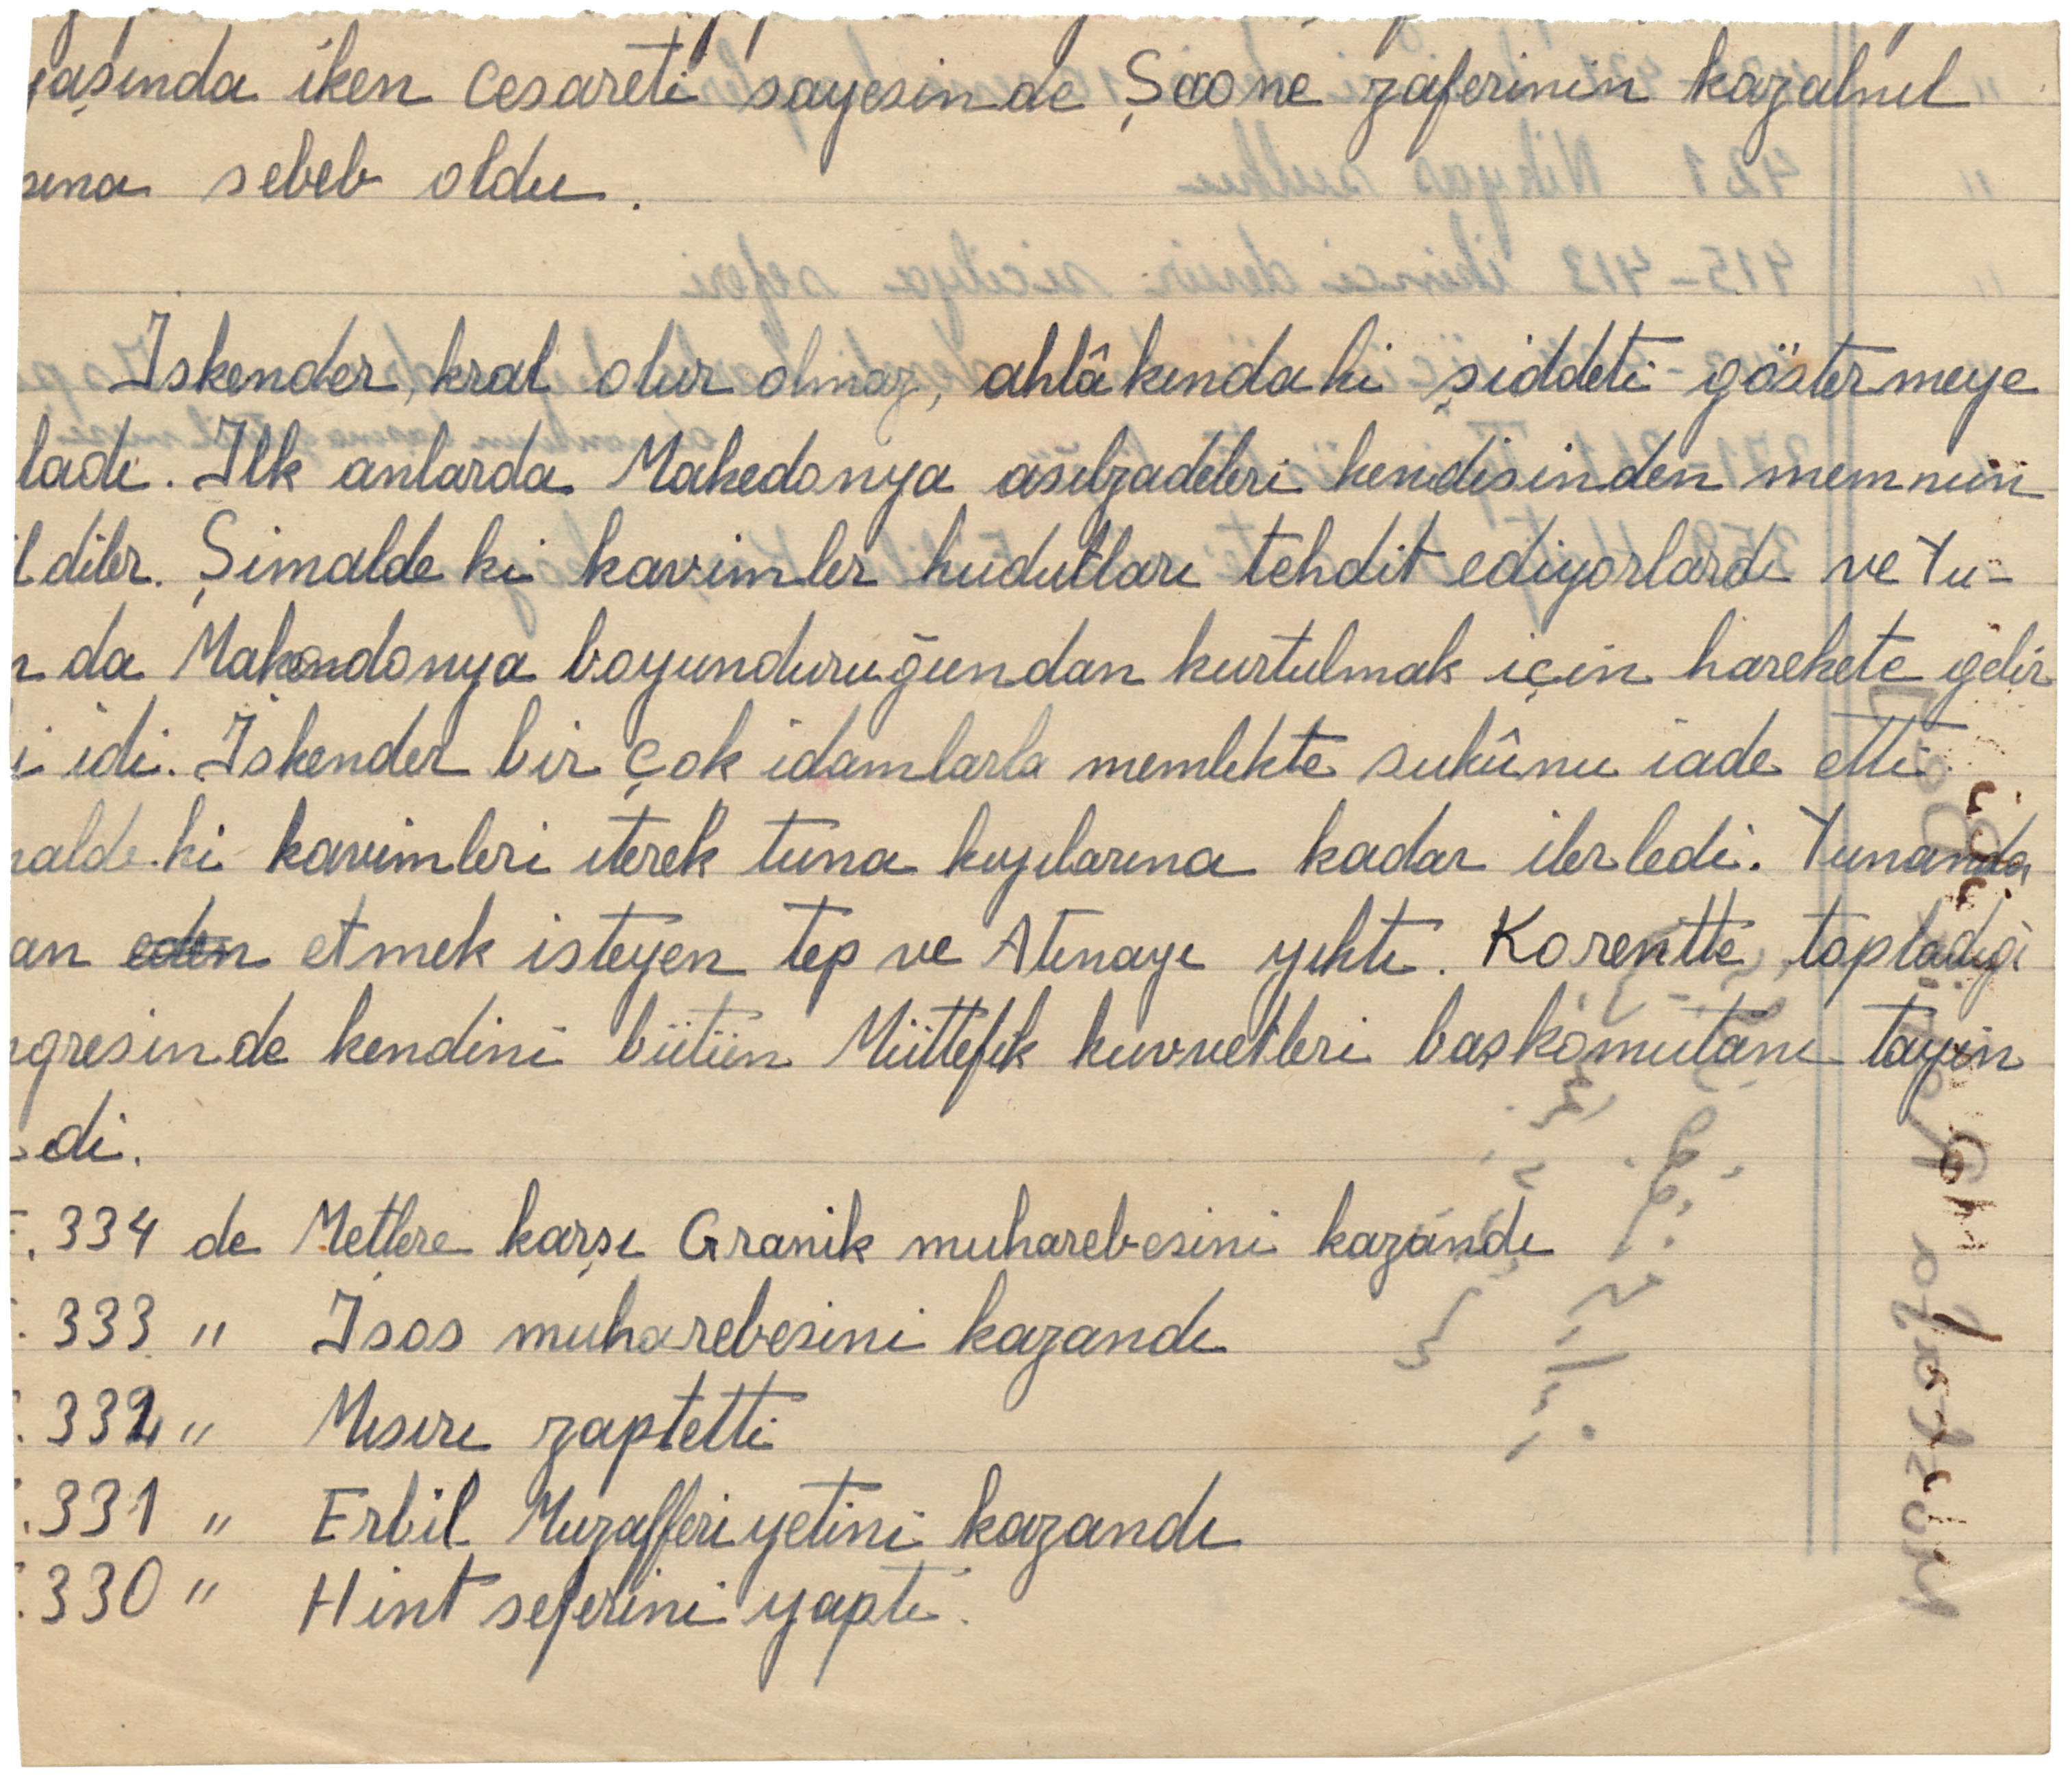 yaşında iken cesareti sayesinde Şaone zaferinin kazalnıl
sına sebeb oldu.
Iskender, kral olur olmaz, ahlâkındaki şiddeti göstermeye
ladı. Ilk anlarda Makedonya asılzadeleri kendisinden memnun
ldiler. Şimaldeki kavimler hudutları tehdit ediyorlardı ve Yu-
n da Makendonya boyunduruğundan kurtulmak için harekete gelir
i idi. İskender bir çok idamlarla memlekte sukûnu iade etti.
malde ki kavimleri iterek tuna kıyılarına kadar ilerledi. Yunanda
an eden etmek isteyen tep ve Atinayı yıktı. Korentte topladığı
ngresinde kendini bütün Müttefik kuvvetleri başkomutanı tayin
edi.
. 334 de Metlere karşı Granik muharebesini kazandı
. 333 " Isos muharebesini kazandı
. 332 " Mısırı zaptetti
. 331 " Erbil Muzafferiyetini kazandı
. 330 " Hint seferini yaptı.